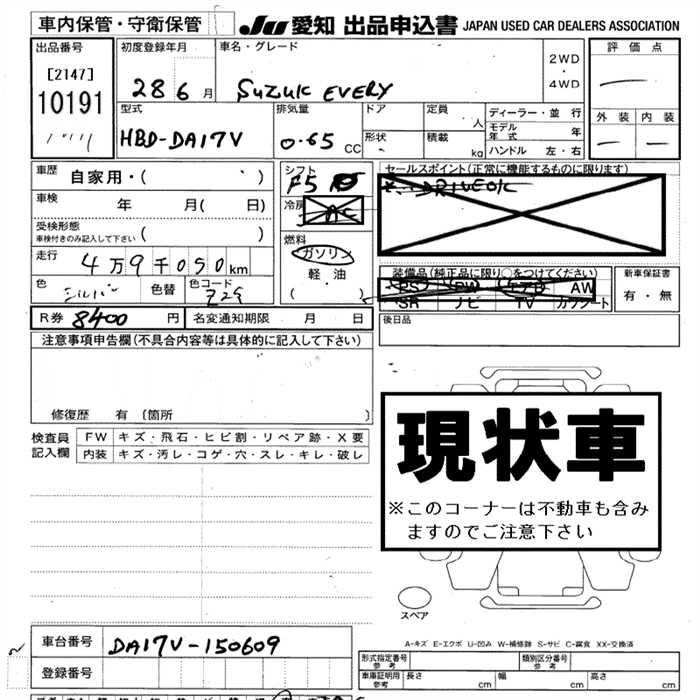 車内保管・守衛保管 JU 愛知 出品申込書 JAPAN USED CAR DEALERS ASSOCIATION
出品番号 初度登録年月 車名・グレード 評価点
[2147] 28 6月 SUZUKI EVERY 2WD・4WD
10191 型式 排気量 ドア 定員 人 ディーラー・並行 外装 内装
HBD-DA17V 0.65 CC 形状 積載 kg モデル年式 年
ハンドル 左・右
車歴 自家用・( ) シフト F5 セールスポイント(正常に機能するものに限ります)
車検 年 月( 日) 冷房 AC DRIVE OK
受検形態
車検付きのみ記入して下さい ( ) 燃料 ガソリン
走行 4万9千050km 軽油 装備品(純正品に限り○をつけてください) 新車保証書
色 シルバー 色替 色コード ( ) PS PW エアB AW 有・無
SR ナビ TV カワシート
R券 8400 円 名変通知期限 月 日 後日品
注意事項申告欄(不具合内容等は具体的に記入して下さい)
修復歴 有 〔箇所 〕
検査員記入欄 FW キズ・飛石・ヒビ割・リペア跡・X要
内装 キズ・汚レ・コゲ・穴・スレ・キレ・破レ
現状車
※このコーナーは不動車も含み
ますのでご注意下さい
スペア
A-キズ E-エクボ U-凹み W-補修跡 S-サビ C-腐食 XX-交換済
車台番号 DA17V-150609
登録番号
形式指定番号 参考 類別区分番号 参考
車庫証明用 参考 長さ cm 幅 cm 高さ cm